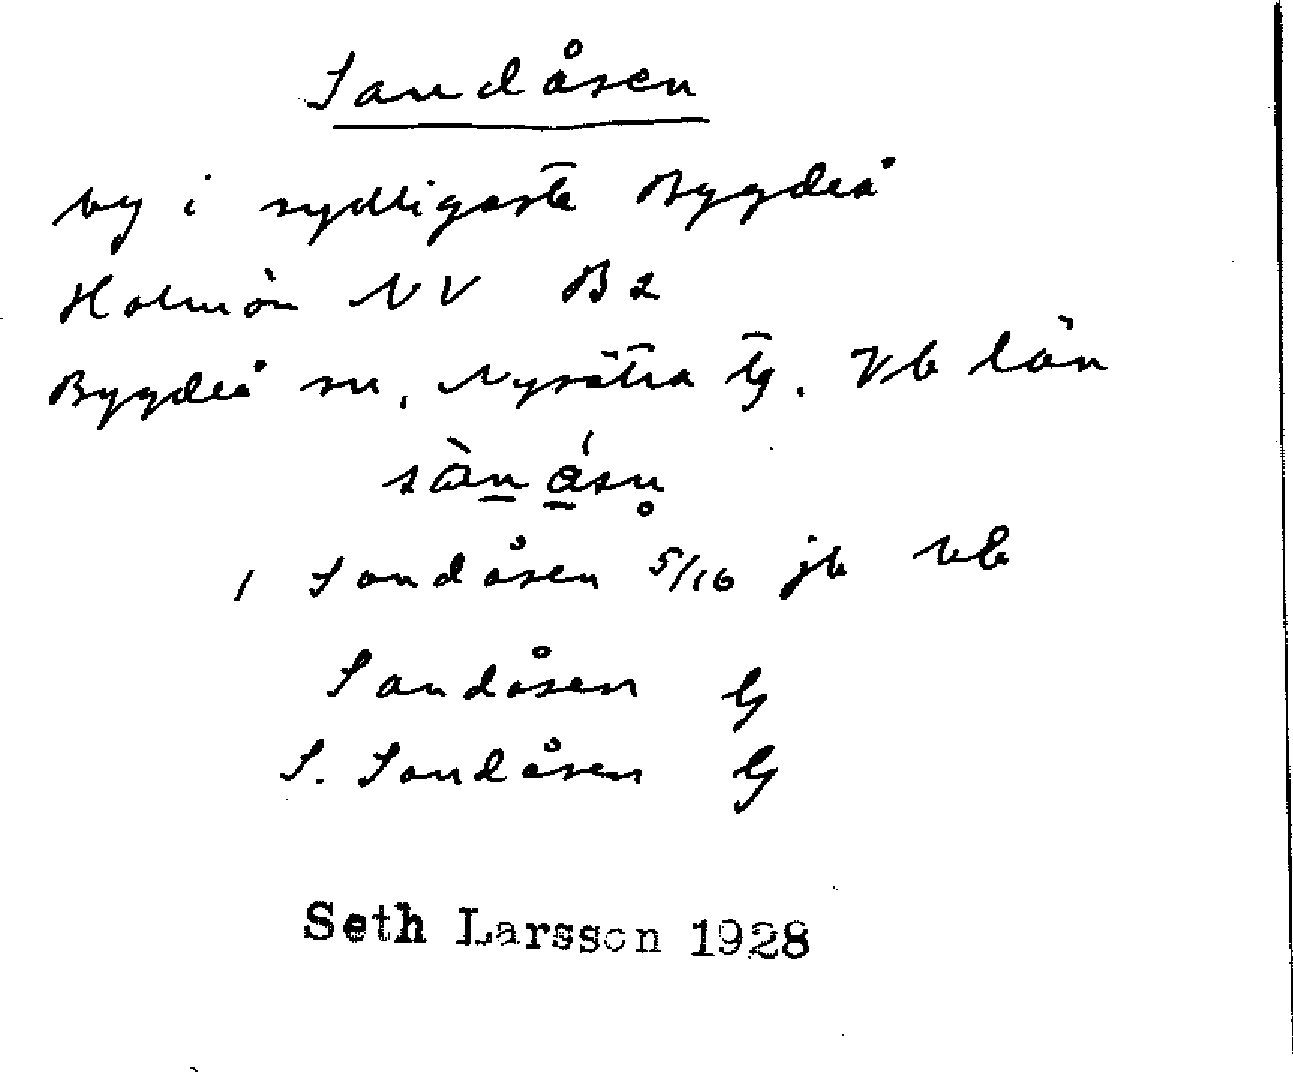 Sandåsen
by i sydligaste Bygdeå
Holmön NV B2
Bygdeå sn, Nysätra tg. Vb län
sàn ásn̥
1 Sandåsen 5/16 jb vb
Sandåsen G
S. Sandåsen G
Seth Larsson 1928